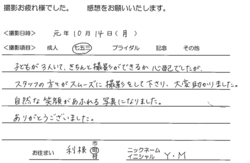 撮影お疲れ様でした。 感想をお願いいたします。
<撮影日時> 元年10月14日(月)
<撮影項目> 成人 七五三 ブライダル 記念 その他
子どもが3人いて、きちんと撮影ができるか心配でしたが、
スタッフの方々がスムーズに撮影をして下さり、大変助かりました。
自然な笑顔があふれる写真になりました。
ありがとうございました。
お住まい 利根 ニックネーム
イニシャル Y・M